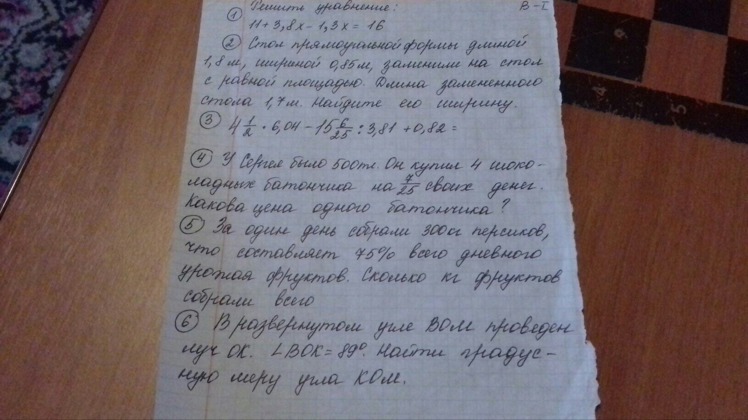 ① Решить уравнение: В-I
11+3,8х-1,3х=16
② Стол прямоугольной формы длиной
1,8м, шириной 0,85м, заменили на стол
с равной площадью. Длина замененного
стола 1,7м. Найдите его ширину.
③ 4 1/2 · 6,04 - 15 6/25 : 3,81 + 0,82 =
④ У Сергея было 500тг. Он купил 4 шоко-
ладных батончика на 7/25 своих денег.
Какова цена одного батончика?
⑤ За один день собрали 300кг персиков,
что составляет 75% всего дневного
урожая фруктов. Сколько кг фруктов
собрали всего
⑥ В развернутом угле ВОМ проведен
луч ОК. ∠ВОК=89°. Найти градус-
ную меру угла КОМ.